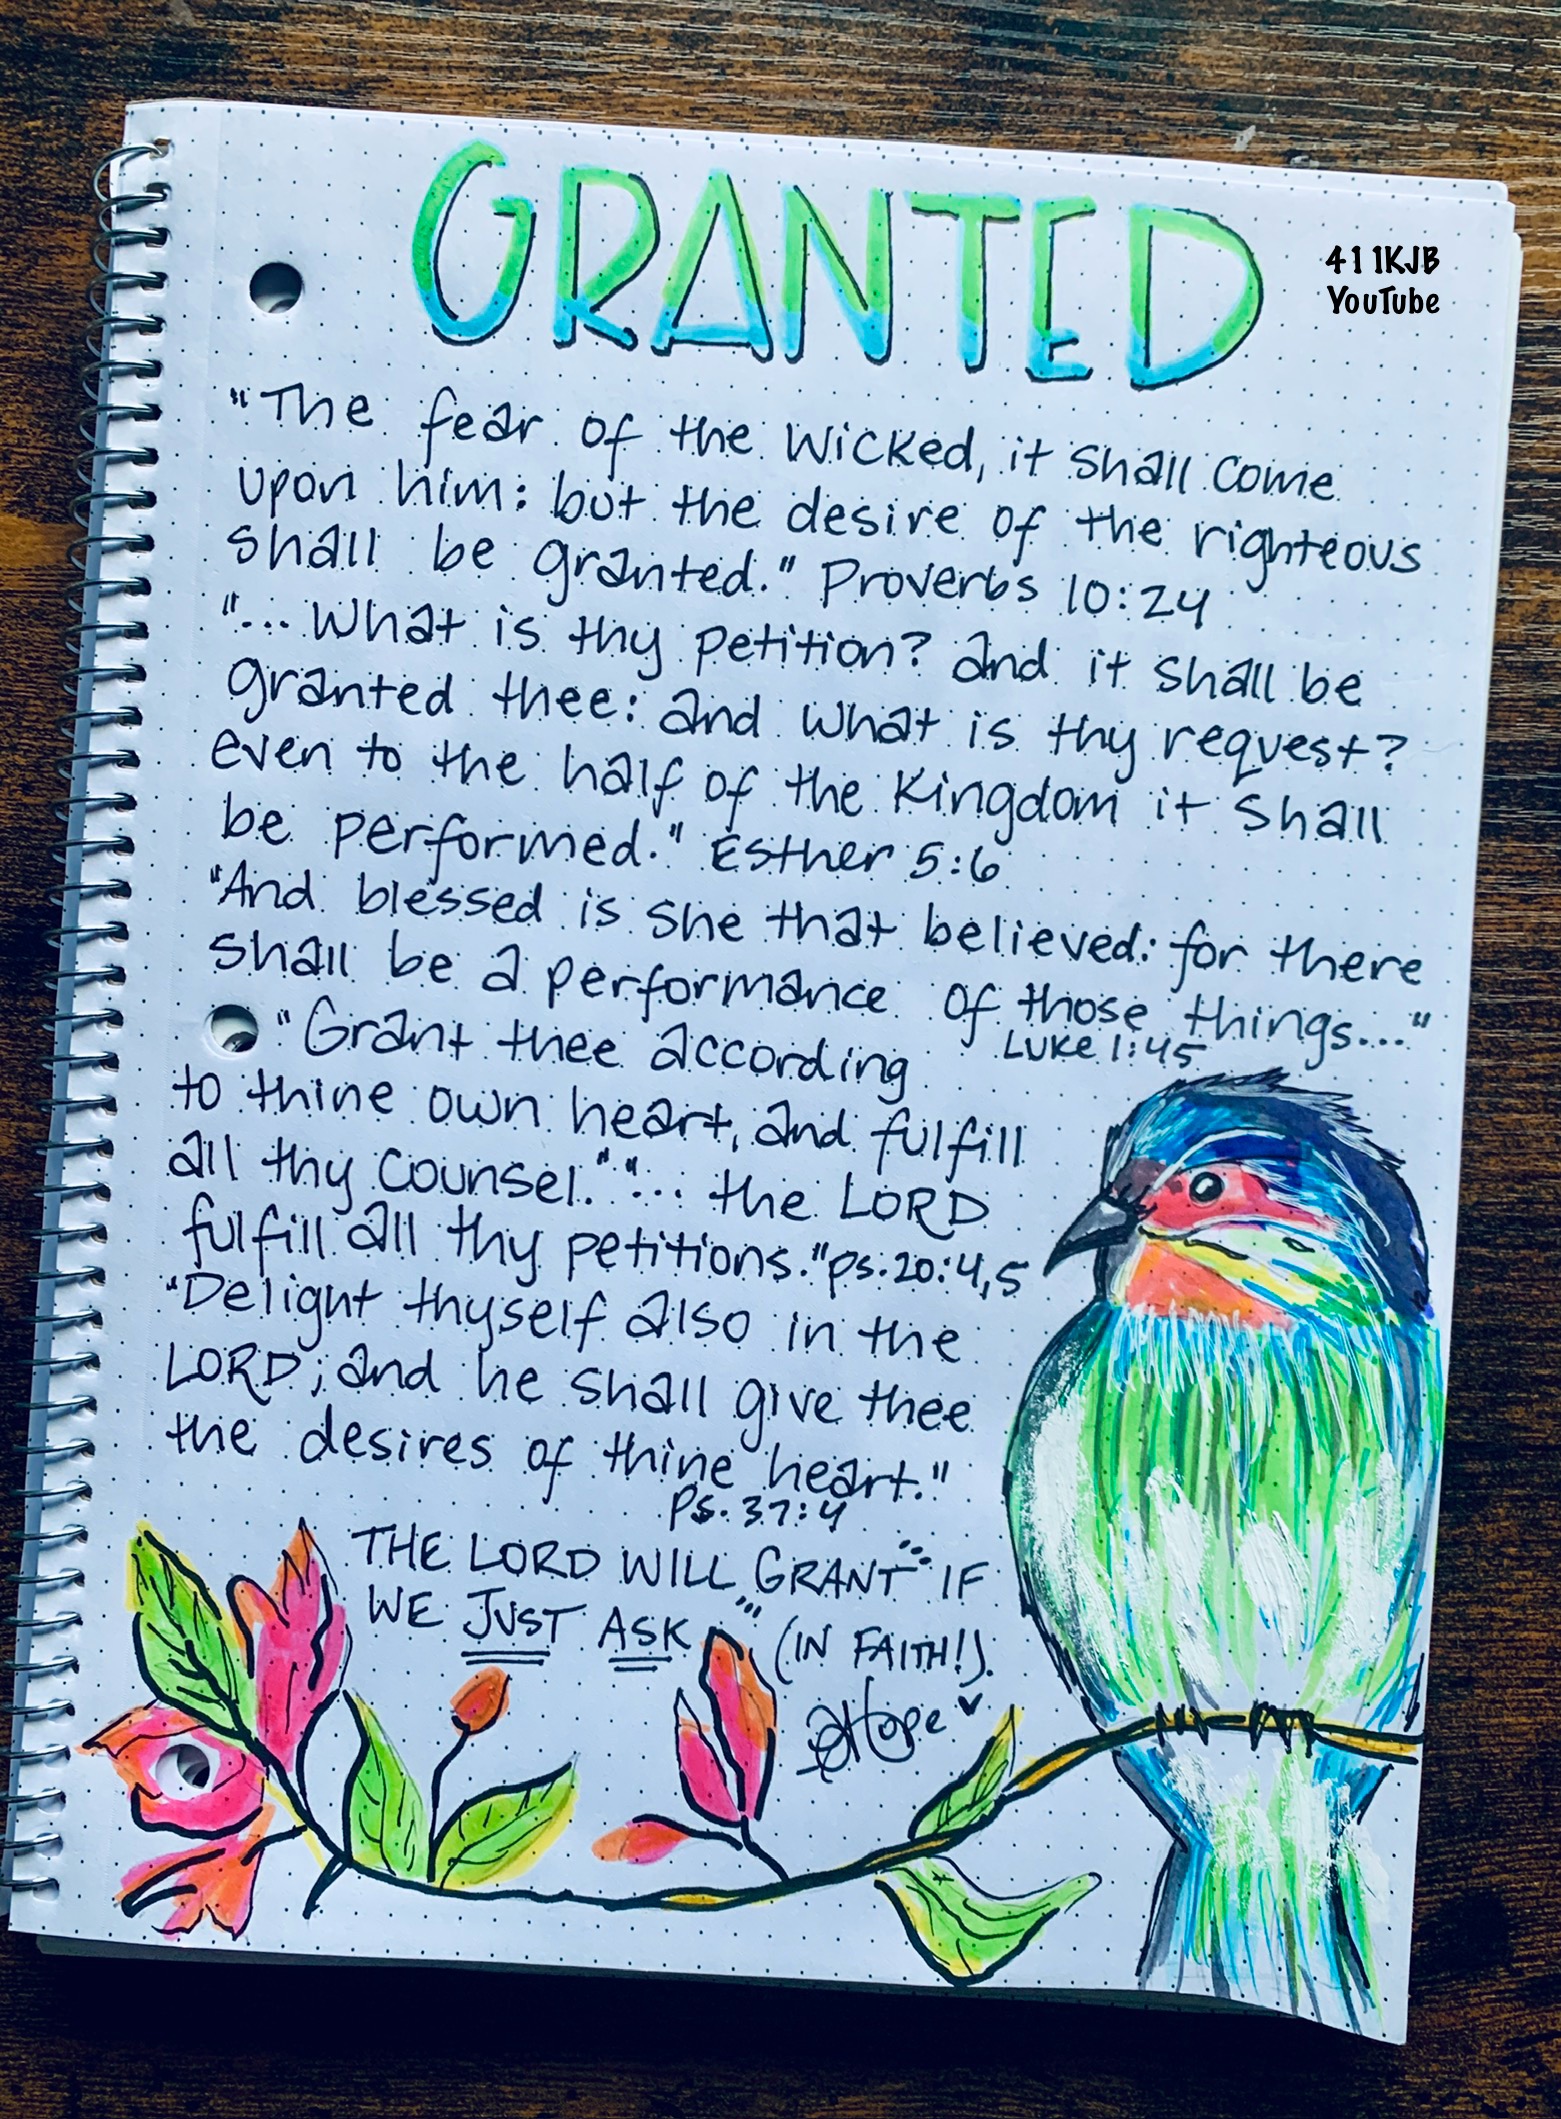 GRANTED
411KJB
YouTube
"The fear of the wicked, it shall come
upon him: but the desire of the righteous
shall be granted." Proverbs 10:24
"... What is thy petition? and it shall be
granted thee: and what is thy request?
even to the half of the kingdom it shall
be performed." Esther 5:6
"And blessed is she that believed: for there
shall be a performance of those things..."
Luke 1:45
"Grant thee according
to thine own heart, and fulfill
all thy counsel." "... the LORD
fulfill all thy petitions." Ps. 20:4,5
"Delight thyself also in the
LORD; and he shall give thee
the desires of thine heart."
Ps. 37:4
THE LORD WILL GRANT... IF
WE JUST ASK... (IN FAITH!).
Hope